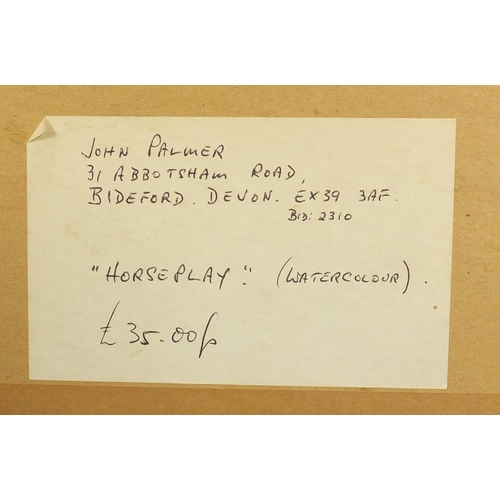 JOHN PALMER
31 ABBOTSHAM ROAD,
BIDEFORD. DEVON. EX39 3AF.
BID: 2310
"HORSEPLAY". (WATERCOLOUR).
£35.00p